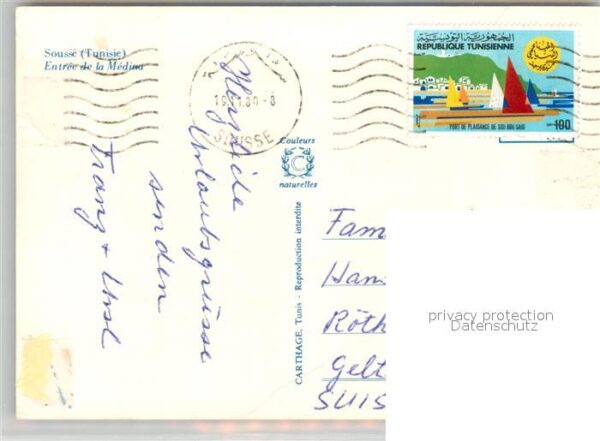 Sousse (Tunisie)
Entrée de la Médina
الجمهورية التونسية
REPUBLIQUE TUNISIENNE
PORT DE PLAISANCE DE SIDI BOU SAID
100
SOUSSE
Couleurs
C
naturelles
CARTHAGE, Tunis - Reproduction interdite
Herzliche
Urlaubsgrüsse
senden
Franz + Ursl
Fam
Han
Röth
Gelt
SUIS
privacy protection
Datenschutz